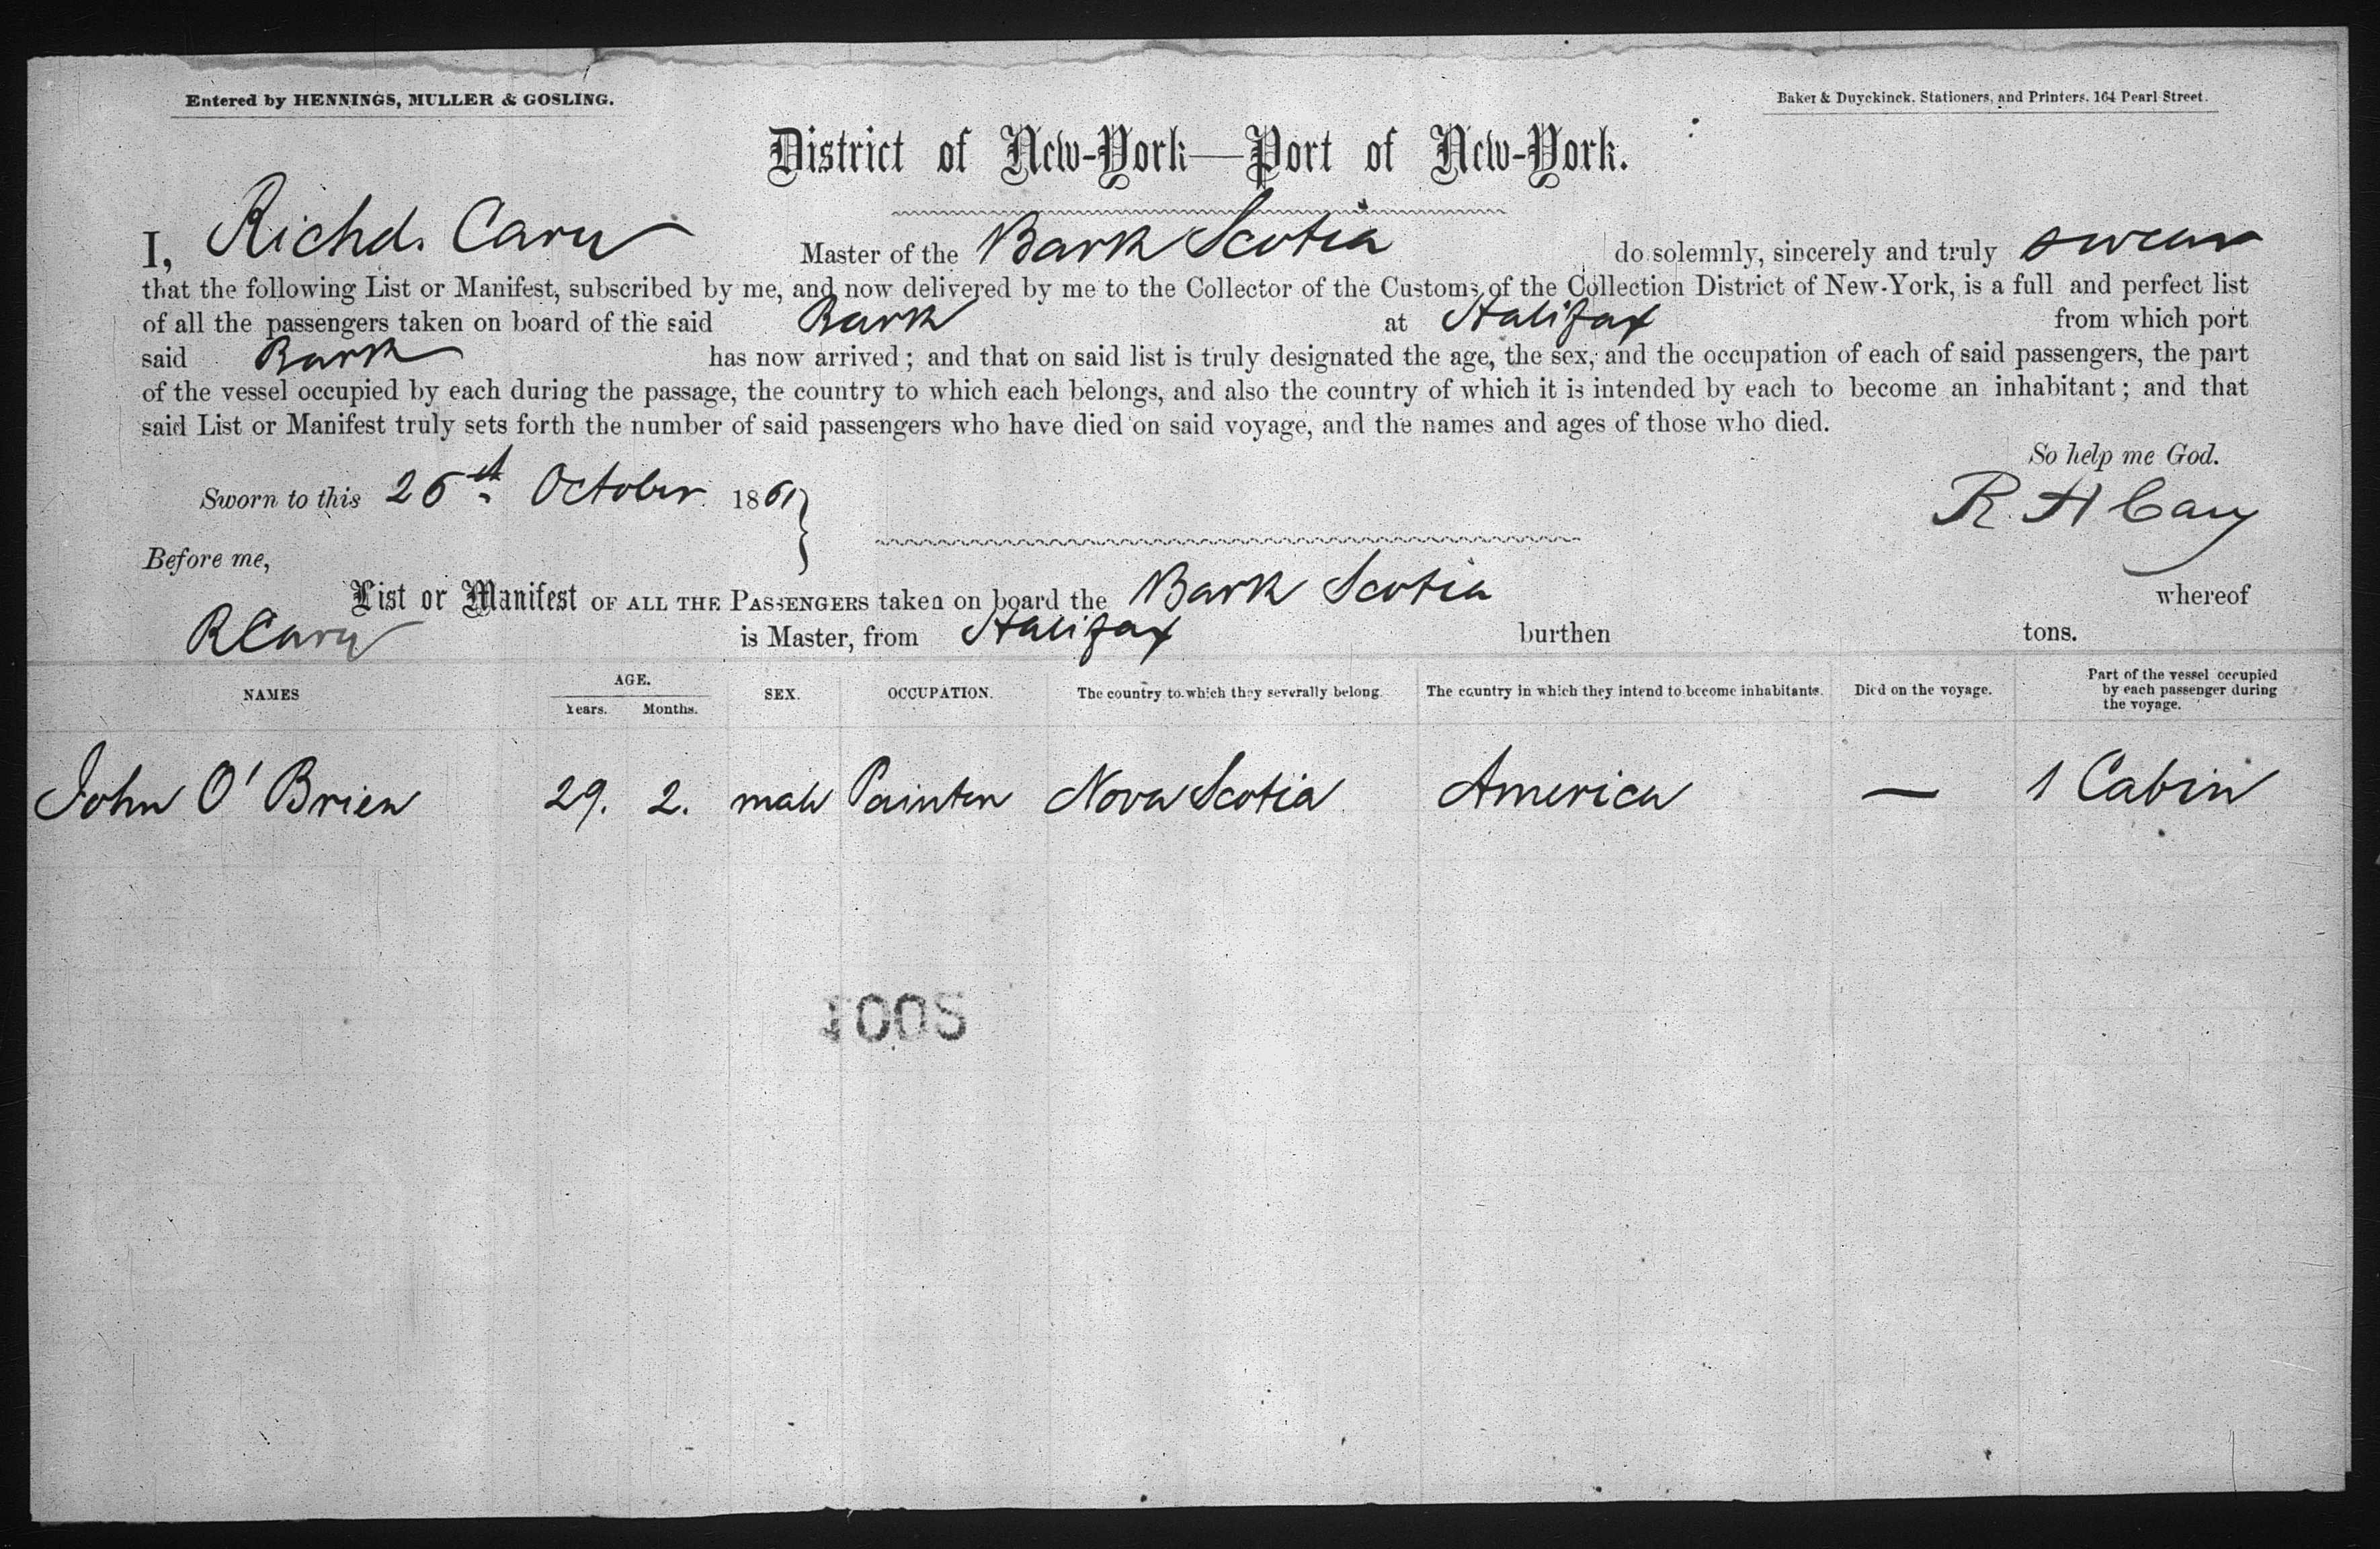 Entered by HENNINGS, MULLER & GOSLING.
Baker & Duyckinck, Stationers, and Printers. 164 Pearl Street.
District of New-York—Port of New-York.
I, Richd. Cary Master of the Bark Scotia do solemnly, sincerely and truly swear
that the following List or Manifest, subscribed by me, and now delivered by me to the Collector of the Customs of the Collection District of New-York, is a full and perfect list
of all the passengers taken on board of the said Bark at Halifax from which port
said Bark has now arrived; and that on said list is truly designated the age, the sex, and the occupation of each of said passengers, the part
of the vessel occupied by each during the passage, the country to which each belongs, and also the country of which it is intended by each to become an inhabitant; and that
said List or Manifest truly sets forth the number of said passengers who have died on said voyage, and the names and ages of those who died.
So help me God.
Sworn to this October 1861
R H Cary
Before me,
List or Manifest OF ALL THE PASSENGERS taken on board the Bark Scotia whereof
R Cary is Master, from Halifax burthen tons.
NAMES
AGE.
Years. Months.
SEX.
OCCUPATION.
The country to which they severally belong.
The country in which they intend to become inhabitants.
Died on the voyage.
Part of the vessel occupied
by each passenger during
the voyage.
John O'Brien 29. 2. male Painter Nova Scotia America — 1 Cabin
1005